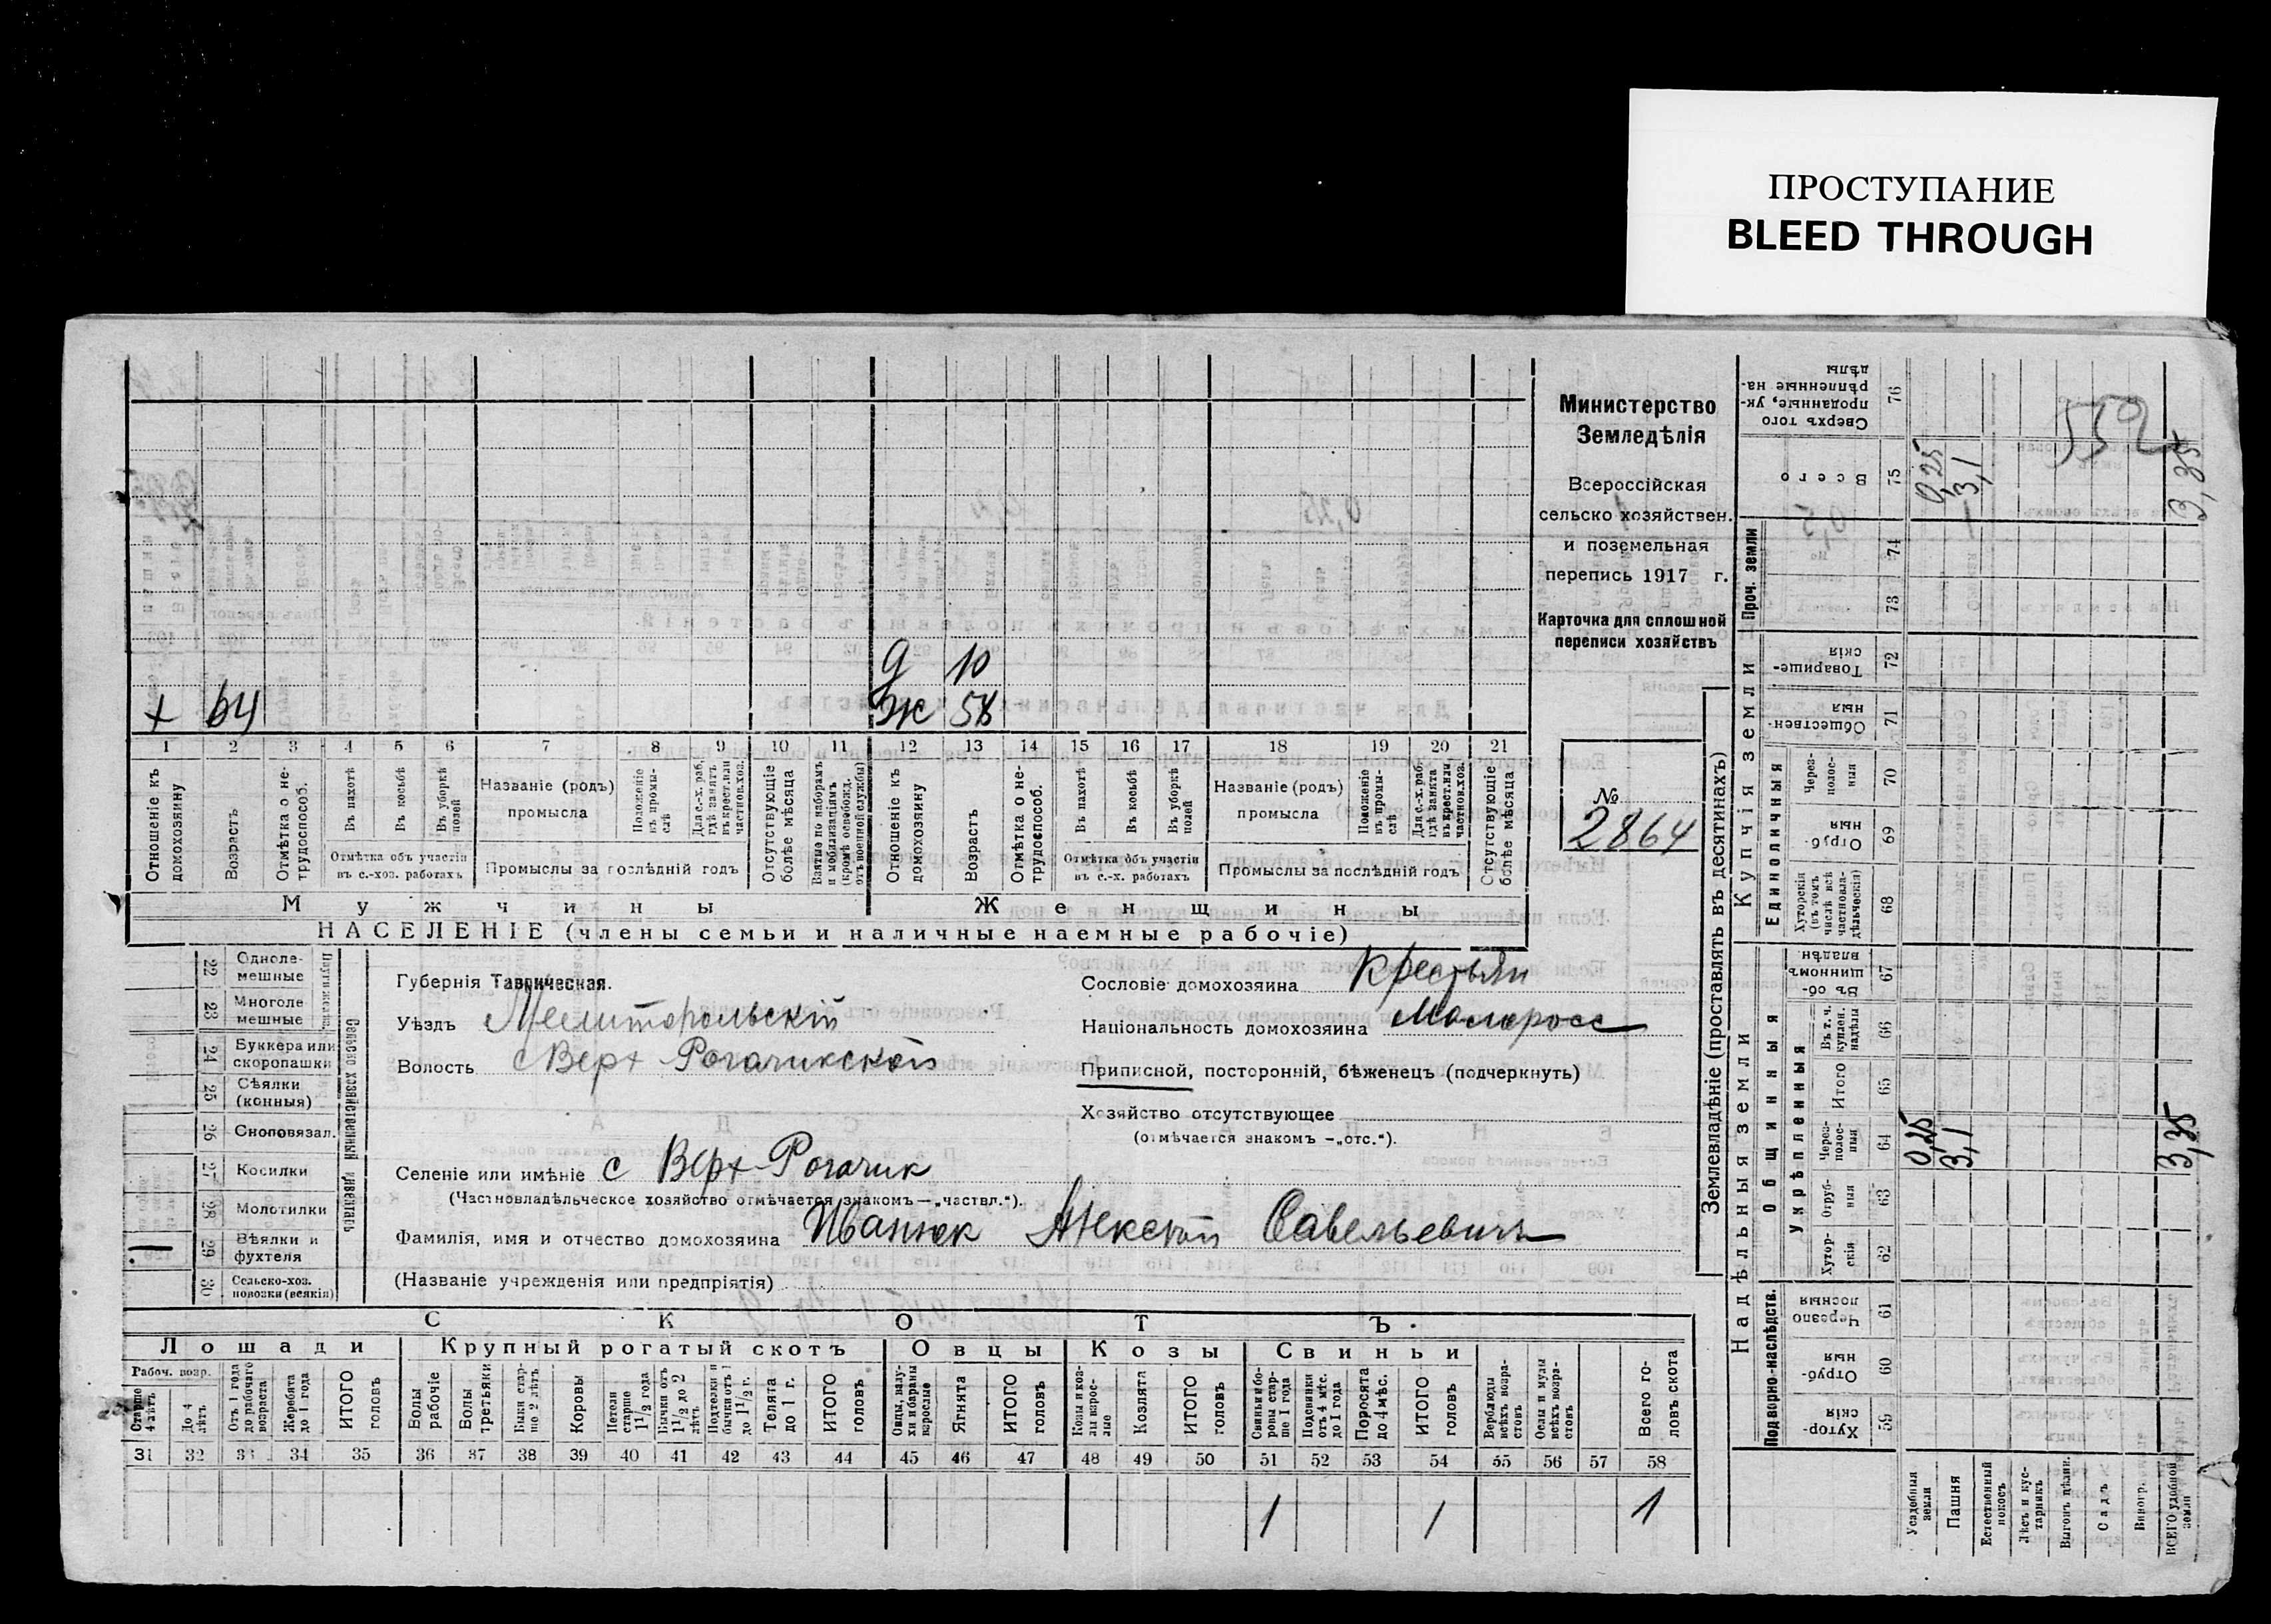 ПРОСТУПАНИЕ
BLEED THROUGH
Министерство
Земледѣлія
Всероссійская
сельско хозяйствен.
и поземельная
перепись 1917 г.
Карточка для сплошной
переписи хозяйствъ
№
2864
552
д 10
х 64
ж 58
1 2 3 4 5 6 7 8 9 10 11 12 13 14 15 16 17 18 19 20 21
Отношеніе къ домохозяину
Возрастъ
Отмѣтка о не-трудоспособ.
Въ пахотѣ
Въ косьбѣ
Въ уборкѣ полей
Отмѣтка объ участіи
въ с.-хоз. работахъ
Названіе (родъ)
промысла
Положеніе въ промы-слѣ
Для с.-х. раб. гдѣ занятъ въ крест. или частнов. хоз.
Промыслы за послѣдній годъ
Отсутствующіе болѣе мѣсяца
Взятые по наборамъ и мобилизаціямъ (кромѣ освобожд. отъ военной службы)
Отношеніе къ домохозяину
Возрастъ
Отмѣтка о не-трудоспособ.
Въ пахотѣ
Въ косьбѣ
Въ уборкѣ полей
Отмѣтка объ участіи
въ с.-х. работахъ
Названіе (родъ)
промысла
Положеніе въ промы-слѣ
Для с.-х. раб. гдѣ занята въ крест. или частнов. хоз.
Промыслы за послѣдній годъ
Отсутствующіе болѣе мѣсяца
Мужчины Женщины
НАСЕЛЕНІЕ (члены семьи и наличные наемные рабочіе)
Сельско хозяйственный инвентарь
22 Одноле-мешные
23 Многоле мешные
24 Буккера или скоропашки
25 Сѣялки (конныя)
26 Сноповязал.
27 Косилки
28 Молотилки
29 Вѣялки и фухтеля
30 Сельско-хоз. повозки (всякія)
Губернія Таврическая.
Уѣздъ Мелитопольскій
Волость с Верх Рогачикской
Селеніе или имѣніе с Верх-Рогачик
(Частновладѣльческое хозяйство отмѣчается знакомъ—„частвл.“).
Фамилія, имя и отчество домохозяина Иванюк Алексей Савельевичъ
(Названіе учрежденія или предпріятія)
Сословіе домохозяина Крестьян
Національность домохозяина Малоросс
Приписной, посторонній, бѣженецъ (подчеркнуть)
Хозяйство отсутствующее
(отмѣчается знакомъ —„отс.“).
СКОТЪ.
Лошади Крупный рогатый скотъ Овцы Козы Свиньи
Рабоч. возр.
Старше 4 лѣтъ
До 4 лѣтъ
Отъ 1 года до рабочаго возраста
Жеребята до 1 года
ИТОГО головъ
Волы рабочіе
Волы третьяки
Быки стар-ше 2 лѣтъ
Коровы
Нетели старше 1 1/2 года
Бычки отъ 1 1/2 до 2 лѣтъ
Подтелки и бычки отъ 1 до 1 1/2 г.
Телята до 1 г.
ИТОГО головъ
Овцы, валу-хи и бараны взрослые
Ягнята
ИТОГО головъ
Козы и коз-лы взрос-лые
Козлята
ИТОГО головъ
Свиньи и бо-ровы стар-ше 1 года
Подсвинки отъ 4 мѣс. до 1 года
Поросята до 4 мѣс.
ИТОГО головъ
Верблюды всѣхъ возра-стовъ
Ослы и мулы всѣхъ возра-стовъ
Всего го-ловъ скота
31 32 33 34 35 36 37 38 39 40 41 42 43 44 45 46 47 48 49 50 51 52 53 54 55 56 57 58
1 1 1
Землевладѣніе (проставлять въ десятинахъ)
Надѣльныя земли Купчія земли Проч. земли
Подворно-наслѣдств. Общинныя Единоличныя
Укрѣпленныя
Хутор-скія 59
Отруб-ныя 60
Черезпо лосныя 61
Хутор-скія 62
Отруб-ныя 63
Через-полос-ныя 64
Итого 65
Въ т. ч. куплен. надѣлы 66
Въ об-щинномъ владѣн. 67
Хуторскія (въ томъ числѣ всѣ частновла-дѣльческія) 68
Отруб-ныя 69
Через-полос-ныя 70
Обществен-ныя 71
Товарище-скія 72
73
74
Всего 75
Сверхъ того проданные, ук-рѣпленные на-дѣлы 76
Усадебная земля 0,25 0,25
Пашня 3,1 3,1
Естественный покосъ
Лѣсъ и кус-тарникъ
Выгонъ цѣлин.
Садъ
Виногр.
ВСЕГО удобной земли 3,35 3,35